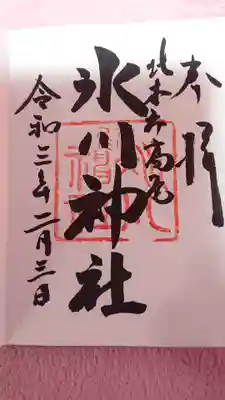 奉拝
北本市高尾
氷川神社
令和三年二月三日